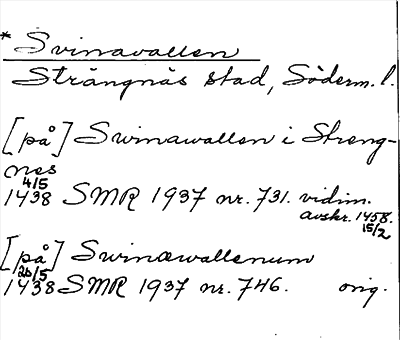 * Svinavallen
Strängnäs stad, Söderm. l.
[på] Swinawallen i Streng-
nes
4/5
1438 SMR 1937 nr. 731. vidim.
avskr. 1458.
15/2
[på] Swinæwallenum
20/5
1438 SMR 1937 nr. 746. orig.